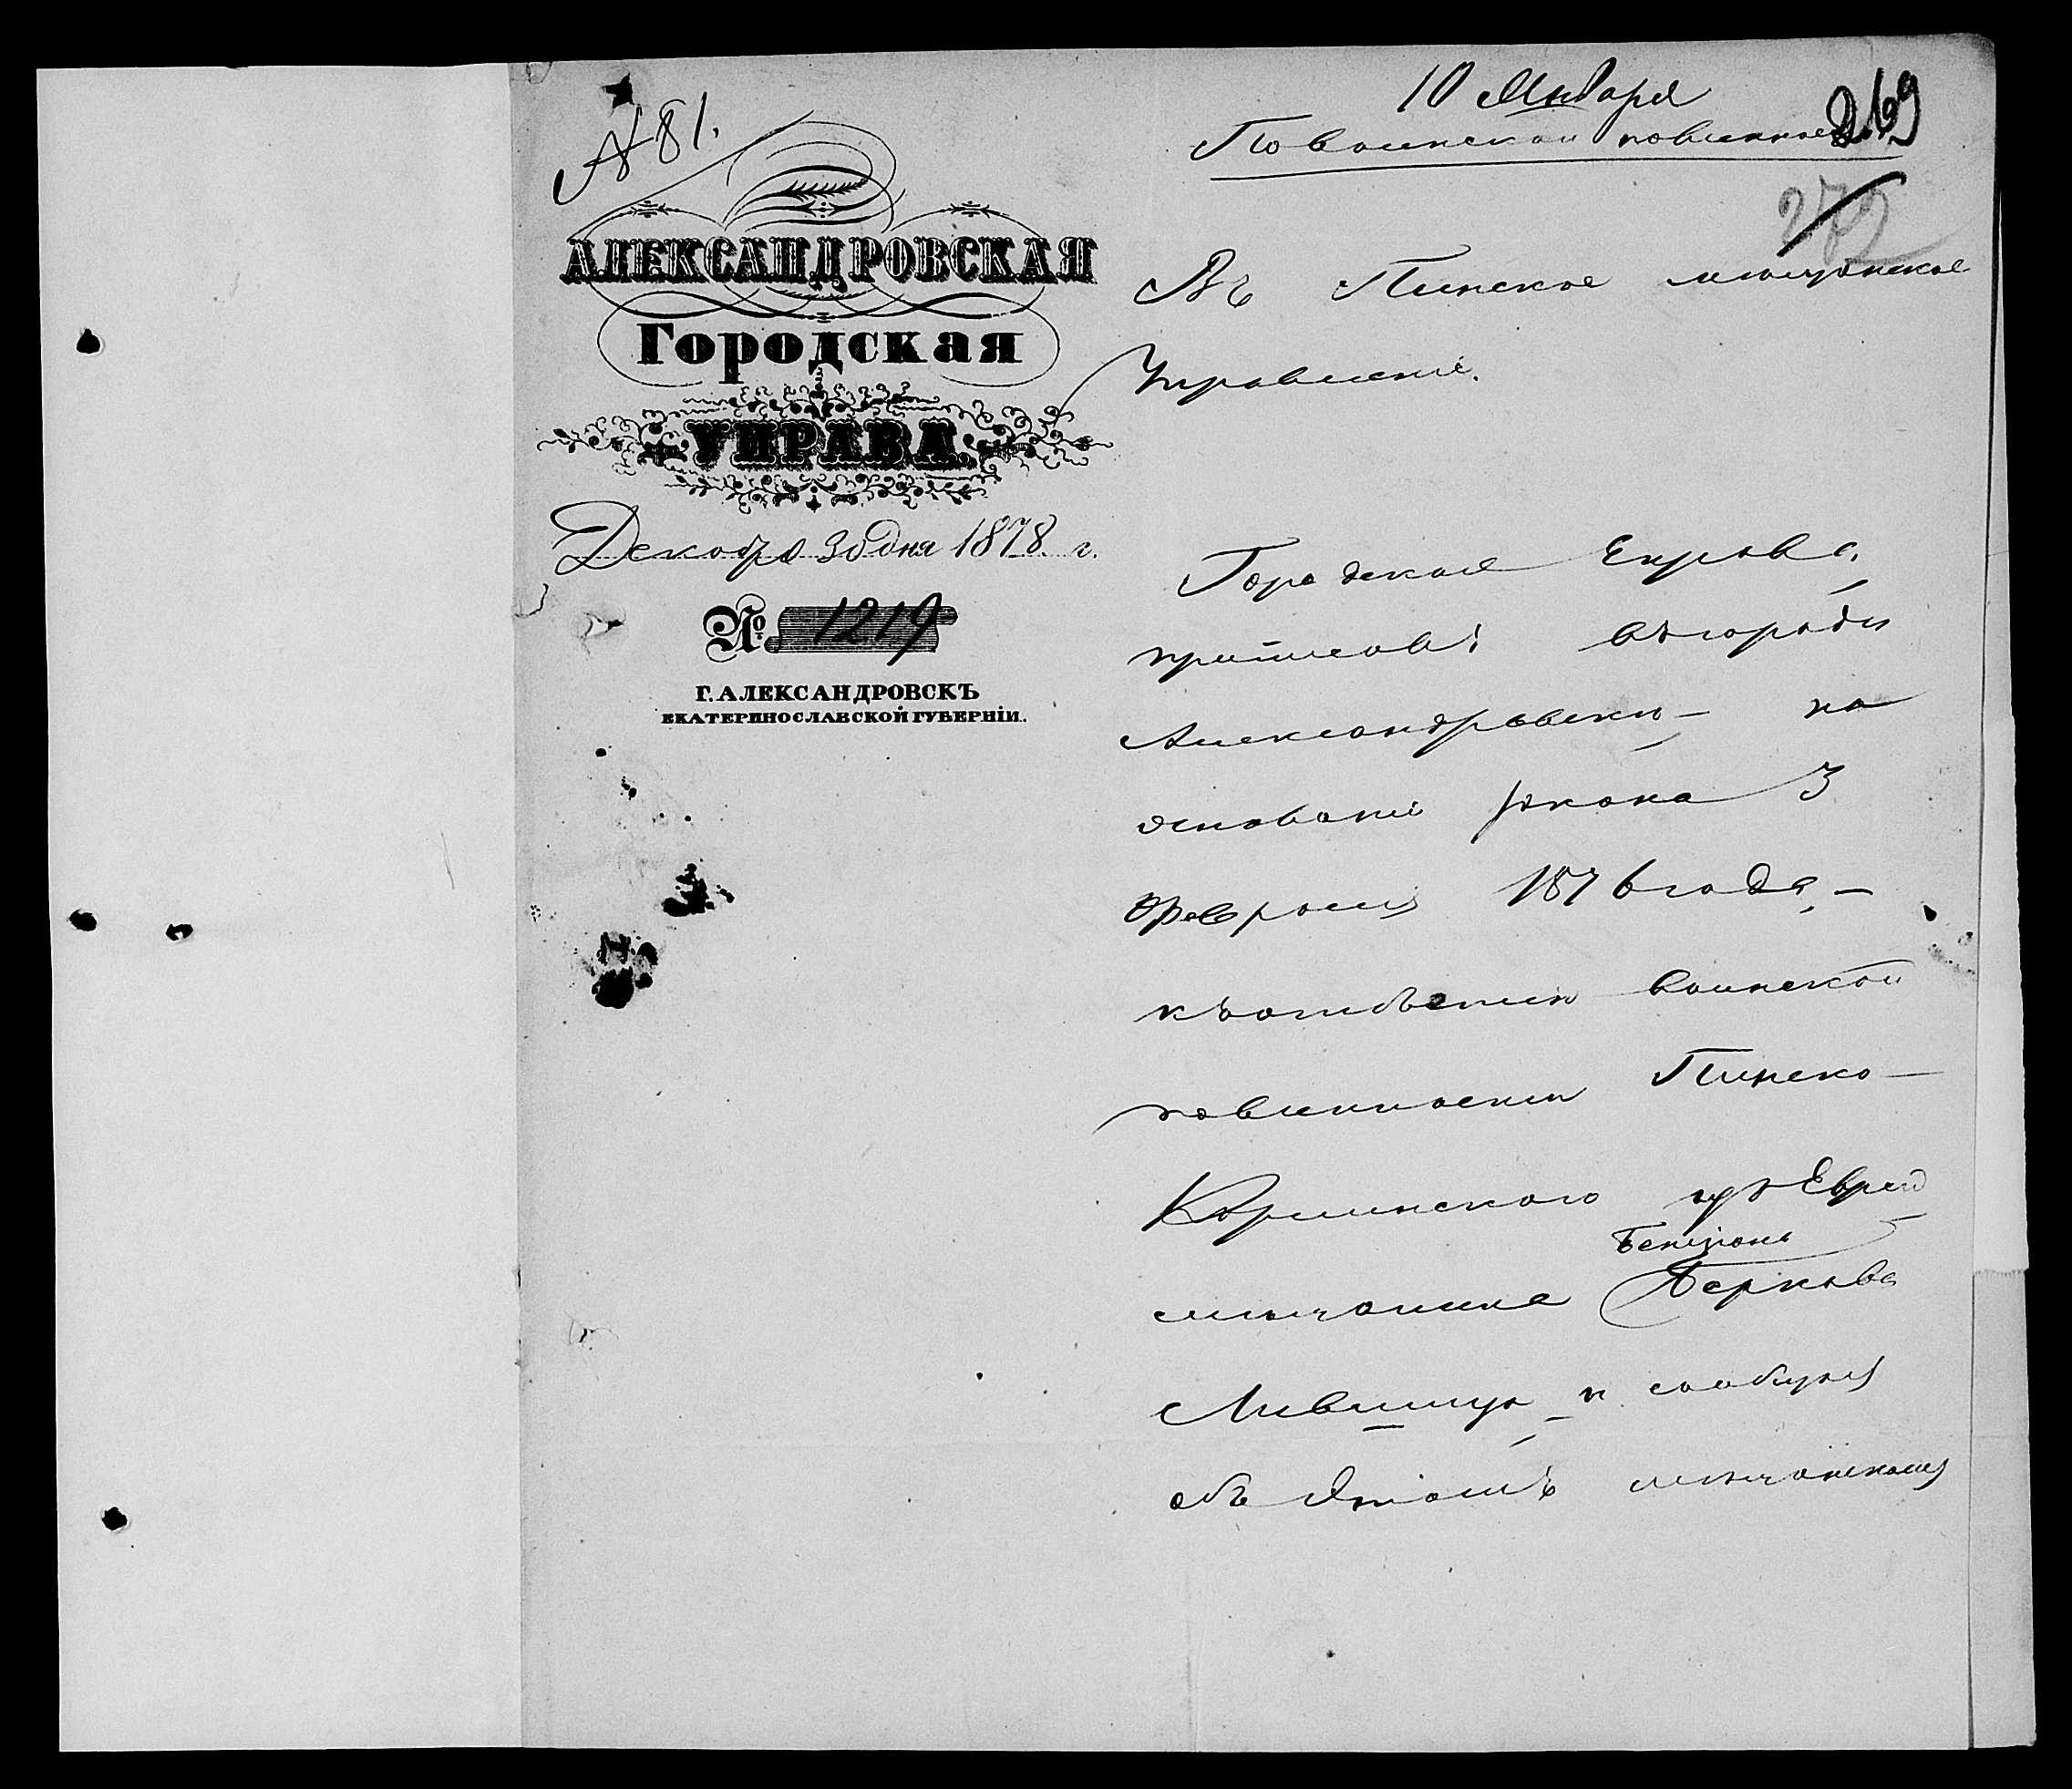 № 81.
АЛЕКСАНДРОВСКАЯ
Городская
УПРАВА.
Декабря 30 дня 1878 г.
№ 1219
Г. АЛЕКСАНДРОВСКЪ
ЕКАТЕРИНОСЛАВСКОЙ ГУБЕРНІИ.
10 Января
По воинской повинности
269
272
Въ Пинское мѣщанское
Управленіе.
Городская Управа,
приписавъ въ городѣ
Александровскѣ — на
основаніи закона 3
Февраля 1876 года, —
къ отбытію воинской
повинности Пинско-
Карлинского изъ Еврей
Бенціонъ
мѣщанина Берковъ
Лившицъ — и сообщая
объ этомъ мѣщанскому